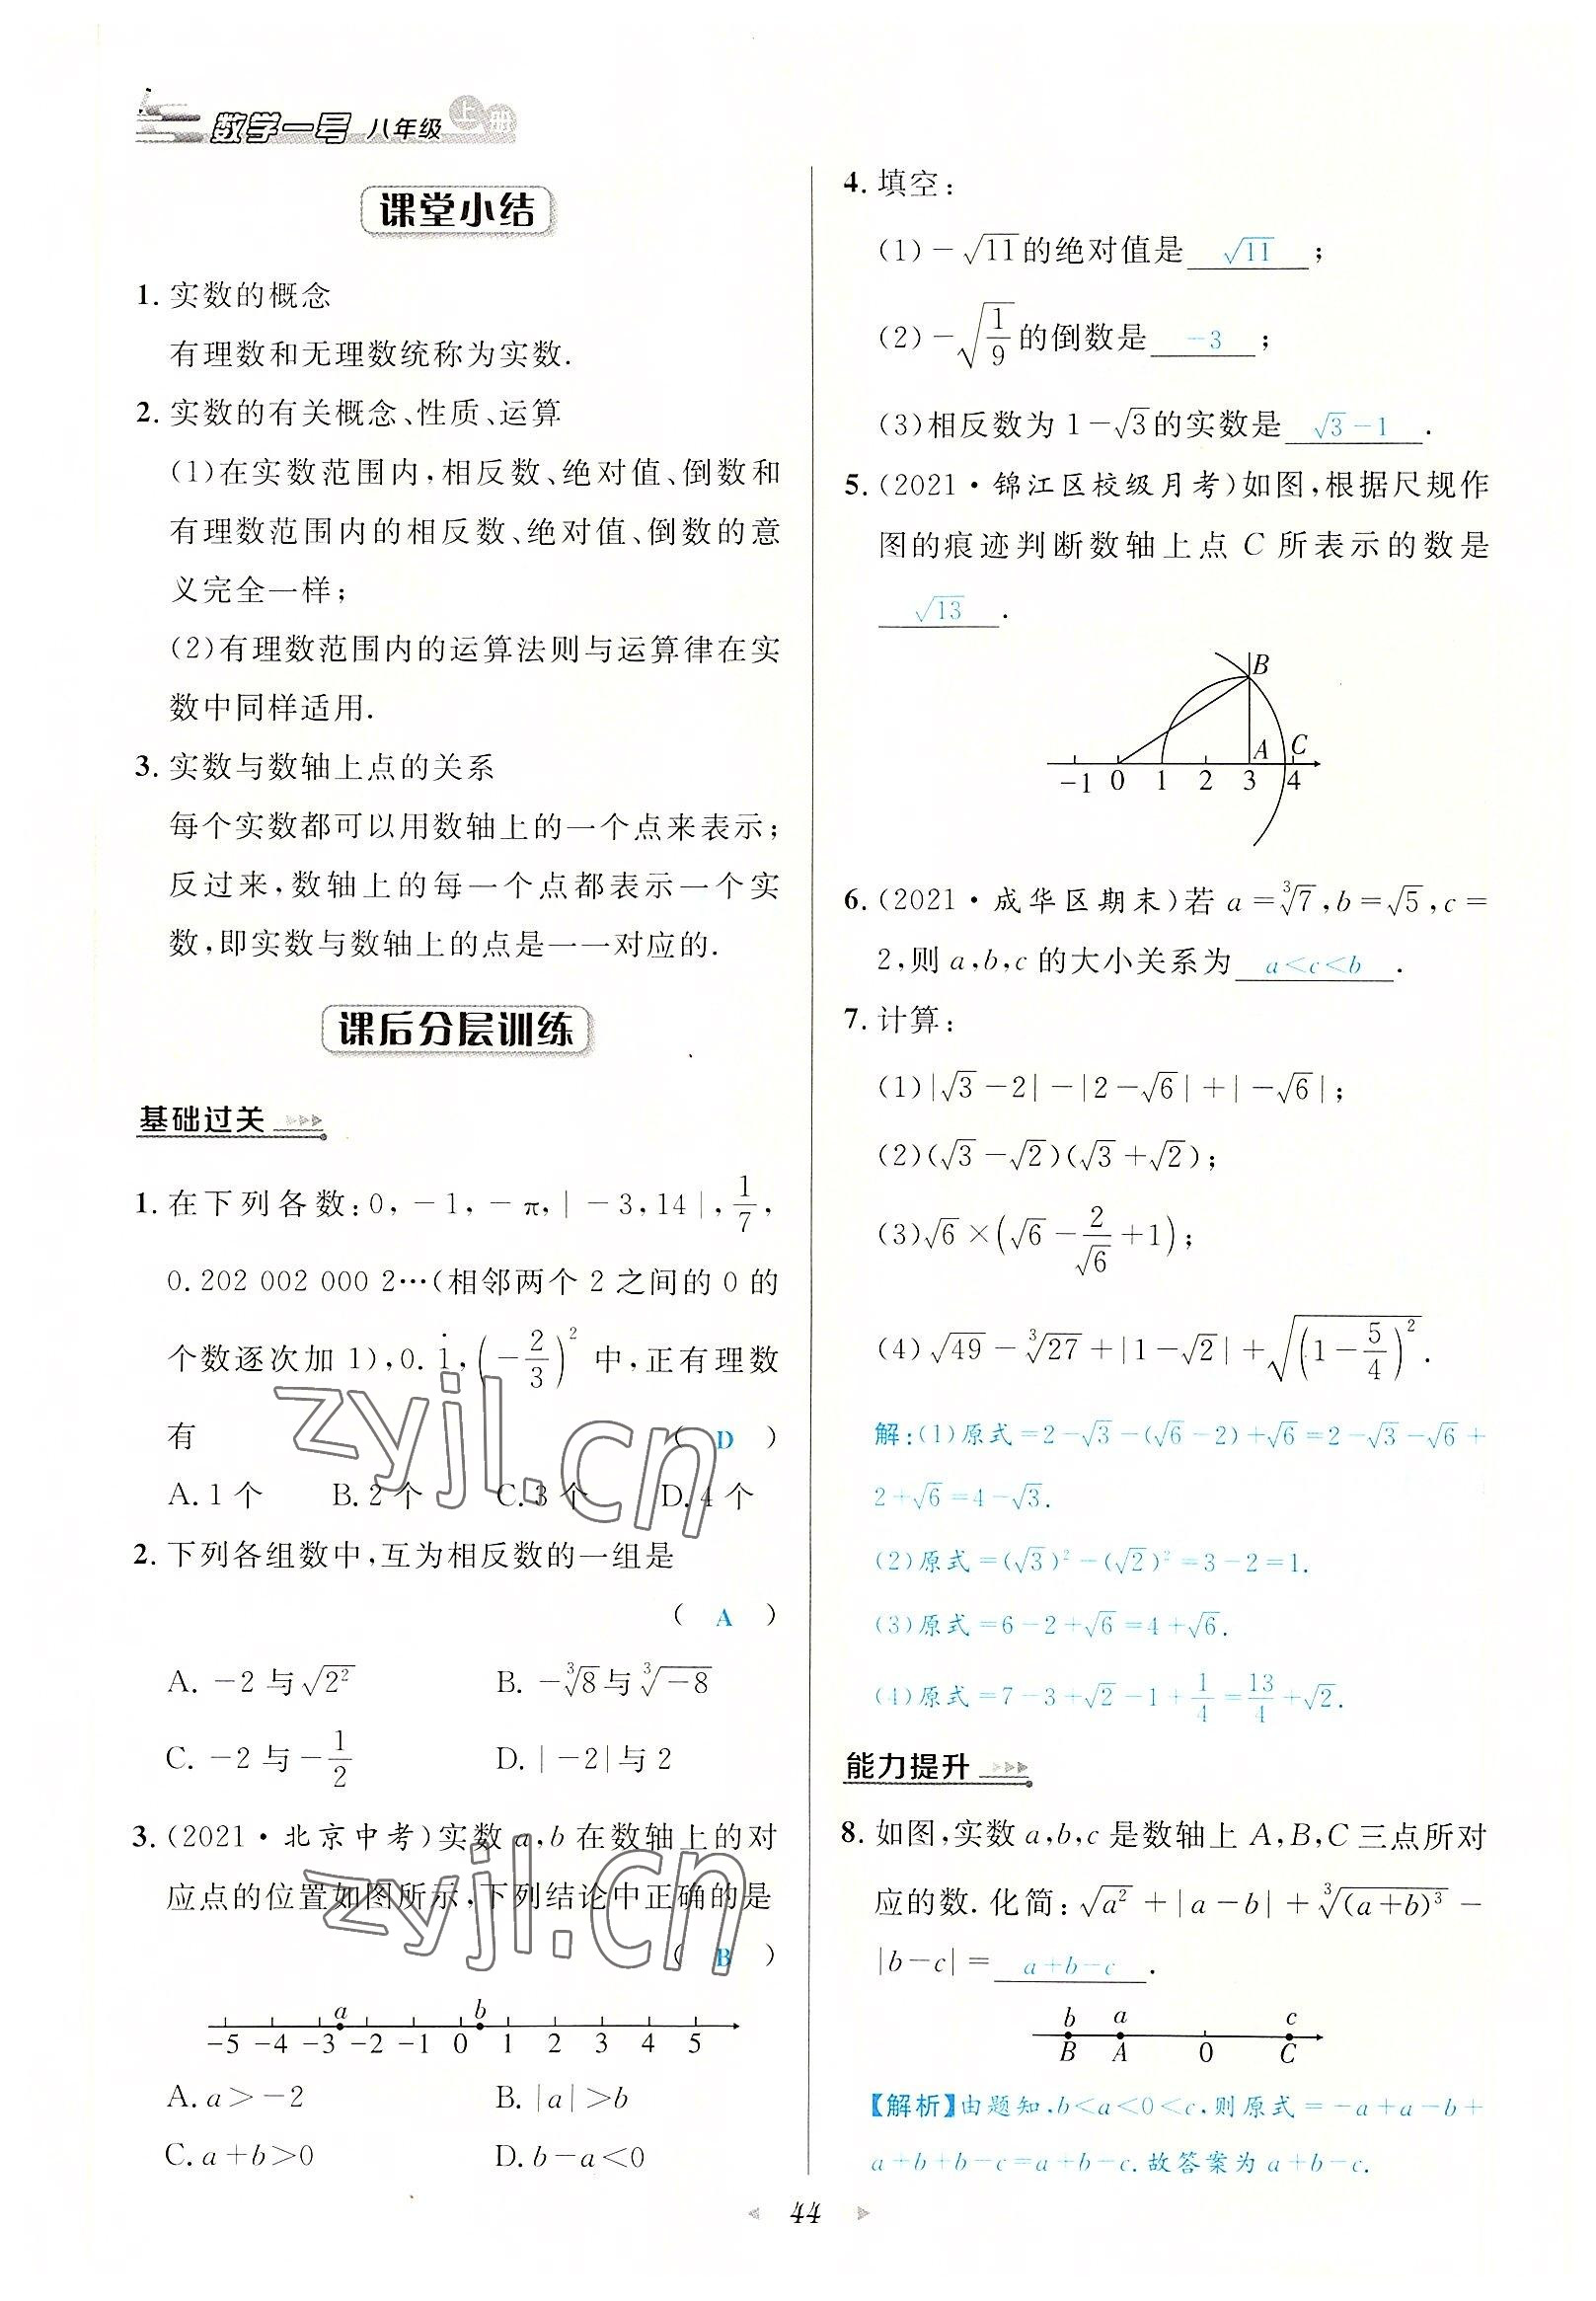 数学一号 八年级 上册
课堂小结
1. 实数的概念
有理数和无理数统称为实数.
2. 实数的有关概念、性质、运算
(1)在实数范围内,相反数、绝对值、倒数和
有理数范围内的相反数、绝对值、倒数的意
义完全一样;
(2)有理数范围内的运算法则与运算律在实
数中同样适用.
3. 实数与数轴上点的关系
每个实数都可以用数轴上的一个点来表示;
反过来,数轴上的每一个点都表示一个实
数,即实数与数轴上的点是一一对应的.
课后分层训练
基础过关
1. 在下列各数:0,-1,-π,|-3,14|,1/7,
0.202 002 000 2…(相邻两个 2 之间的 0 的
个数逐次加 1),0.1̇,(-2/3)² 中,正有理数
有 ( D )
A. 1 个 B. 2 个 C. 3 个 D. 4 个
2. 下列各组数中,互为相反数的一组是
( A )
A. -2 与 √2² B. -∛8 与 ∛-8
C. -2 与 -1/2 D. |-2| 与 2
3. (2021·北京中考)实数 a,b 在数轴上的对
应点的位置如图所示,下列结论中正确的是
( B )
a b
-5 -4 -3 -2 -1 0 1 2 3 4 5
A. a>-2 B. |a|>b
C. a+b>0 D. b-a<0
4. 填空:
(1) -√11 的绝对值是 √11 ;
(2) -√(1/9) 的倒数是 -3 ;
(3)相反数为 1-√3 的实数是 √3-1 .
5. (2021·锦江区校级月考)如图,根据尺规作
图的痕迹判断数轴上点 C 所表示的数是
√13 .
B
A C
-1 0 1 2 3 4
6. (2021·成华区期末)若 a=∛7,b=√5,c=
2,则 a,b,c 的大小关系为 a<c<b .
7. 计算:
(1)|√3-2|-|2-√6|+|-√6|;
(2)(√3-√2)(√3+√2);
(3)√6×(√6-2/√6+1);
(4)√49-∛27+|1-√2|+√((1-5/4)²).
解:(1)原式=2-√3-(√6-2)+√6=2-√3-√6+
2+√6=4-√3.
(2)原式=(√3)²-(√2)²=3-2=1.
(3)原式=6-2+√6=4+√6.
(4)原式=7-3+√2-1+1/4=13/4+√2.
能力提升
8. 如图,实数 a,b,c 是数轴上 A,B,C 三点所对
应的数. 化简:√a²+|a-b|+∛(a+b)³-
|b-c|= a+b-c .
b a c
B A 0 C
【解析】由题知,b<a<0<c,则原式=-a+a-b+
a+b+b-c=a+b-c.故答案为 a+b-c.
44
zyjl.cn
zyjl.cn